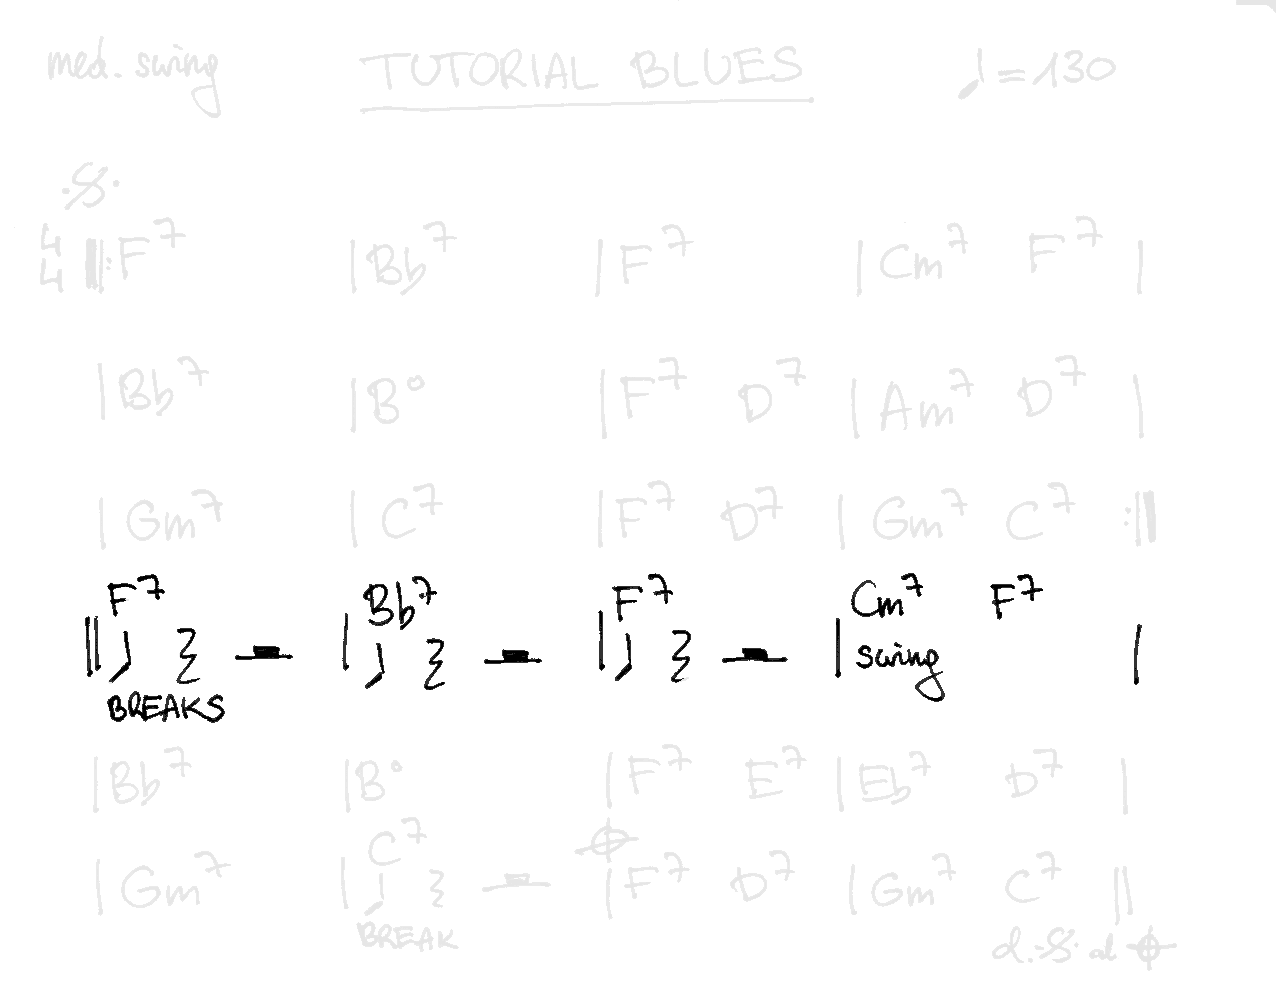 med. swing TUTORIAL BLUES ♩=130
𝄋
4 4 F7 | Bb7 | F7 | Cm7 F7 |
| Bb7 | B° | F7 D7 | Am7 D7 |
| Gm7 | C7 | F7 D7 | Gm7 C7 :||
F7 Bb7 F7 Cm7 F7
swing
BREAKS
| Bb7 | B° | F7 E7 | Eb7 D7 |
| Gm7 | C7 | F7 D7 | Gm7 C7 ||
BREAK d.𝄋. al 𝄌